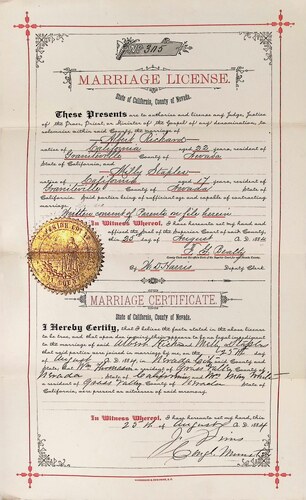 No. 305
MARRIAGE LICENSE.
State of California, County of Nevada.
These Presents are to authorize and license any Judge, Justice
of the Peace, Priest, or Minister of the Gospel of any denomination, to
solemnize within said County, the marriage of
Albert Richard
native of California aged 22 years, resident of
Graniteville County of Nevada
State of California, and
Milly Stapler
native of California aged 17 years, resident of
Graniteville County of Nevada
State of California. Said parties being of sufficient age and capable of contracting
marriage.
Written consent of Parents on file herein
In Witness Whereof, I have hereunto set my hand and
affixed the Seal of the Superior Court of said County,
this 25 day of August A. D. 1884
Deputy Clerk.
MARRIAGE CERTIFICATE.
State of California, County of Nevada.
I Hereby Certify, that I believe the facts stated in the above license
to be true, and that upon due inquiry there appears to be no legal impediment
to the marriage of said Albert Richard, Milly Stapler
that said parties were joined in marriage by me on the 25th day of
August A. D. 1884, in Nevada City
County and State; Thomas a resident of Grass Valley County of
Nevada, State of California, and
resident of Grass Valley County of Nevada State of
California, were present as witnesses of said ceremony.
In Witness Whereof, I have hereunto set my hand, this
25th of August A. D. 1884
J. Sims